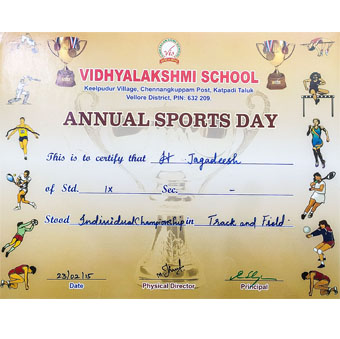 VIDHYALAKSHMI SCHOOL
Keelpudur Village, Chennangkuppam Post, Katpadi Taluk
Vellore District, PIN: 632 209
ANNUAL SPORTS DAY
This is to certify that H Jagadeesh
of Std. IX Sec. -
Stood Individual Championship in Track and Field.
23/02/15
Date Physical Director Principal